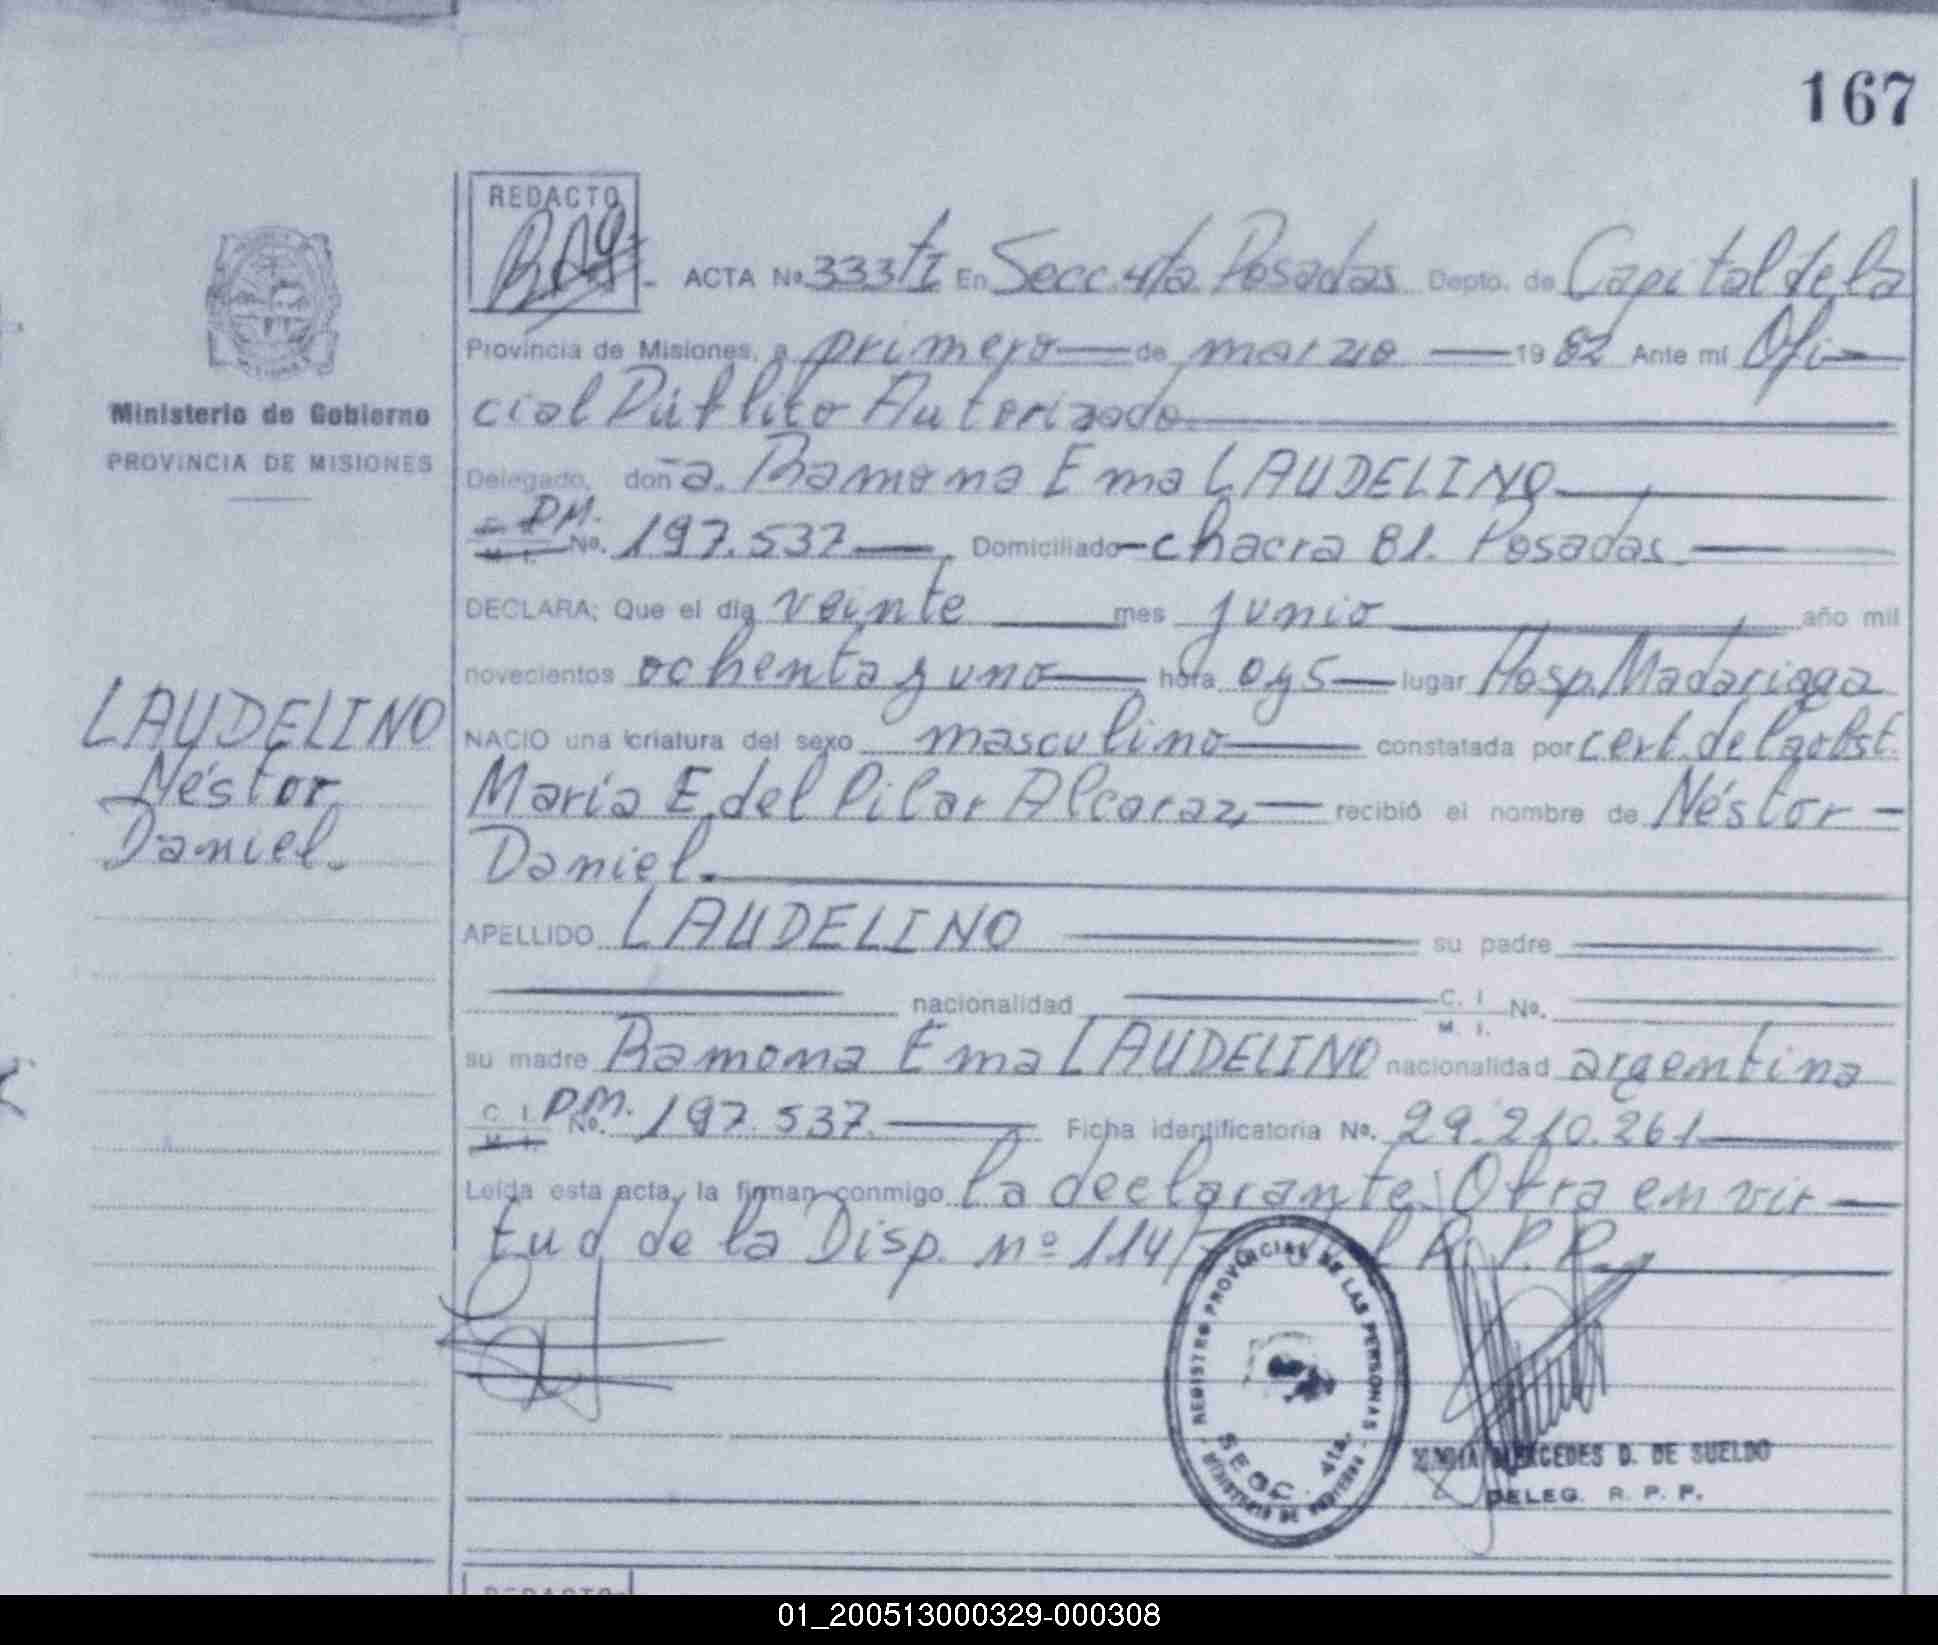 167
REDACTO
ACTA Nº 333 tI En Secc. 4ta. Posadas Depto. de Capital de la
Provincia de Misiones, a primero de marzo 1982 Ante mí Ofi-
cial Público Autorizado
Ministerio de Gobierno
PROVINCIA DE MISIONES
Delegado, doña. Ramona Ema LAUDELINO
DM.
M. I. No. 197.537 Domiciliado chacra 81. Posadas
DECLARA; Que el día veinte mes junio año mil
novecientos ochenta y uno hora 0y5 lugar Hosp. Madariaga
LAUDELINO
Néstor
Daniel.
NACIO una criatura del sexo masculino constatada por cert. de la obst.
María E. del Pilar Alcaraz, recibió el nombre de Néstor -
Daniel.
APELLIDO LAUDELINO su padre
nacionalidad C. I. M. I. No.
su madre Ramona Ema LAUDELINO nacionalidad argentina
C. I. M. I. DM. No. 197.537. Ficha identificatoria No. 29.210.261
Leída esta acta, la firman conmigo la declarante. Obra en vir-
tud de la Disp. nº 114/ R. P. P.
REGISTRO PROVINCIAL DE LAS PERSONAS
MINISTERIO DE GOBIERNO - MISIONES
SECC. 4ta.
MERCEDES D. DE SUELDO
DELEG. R. P. P.
REDACTO
01_200513000329-000308